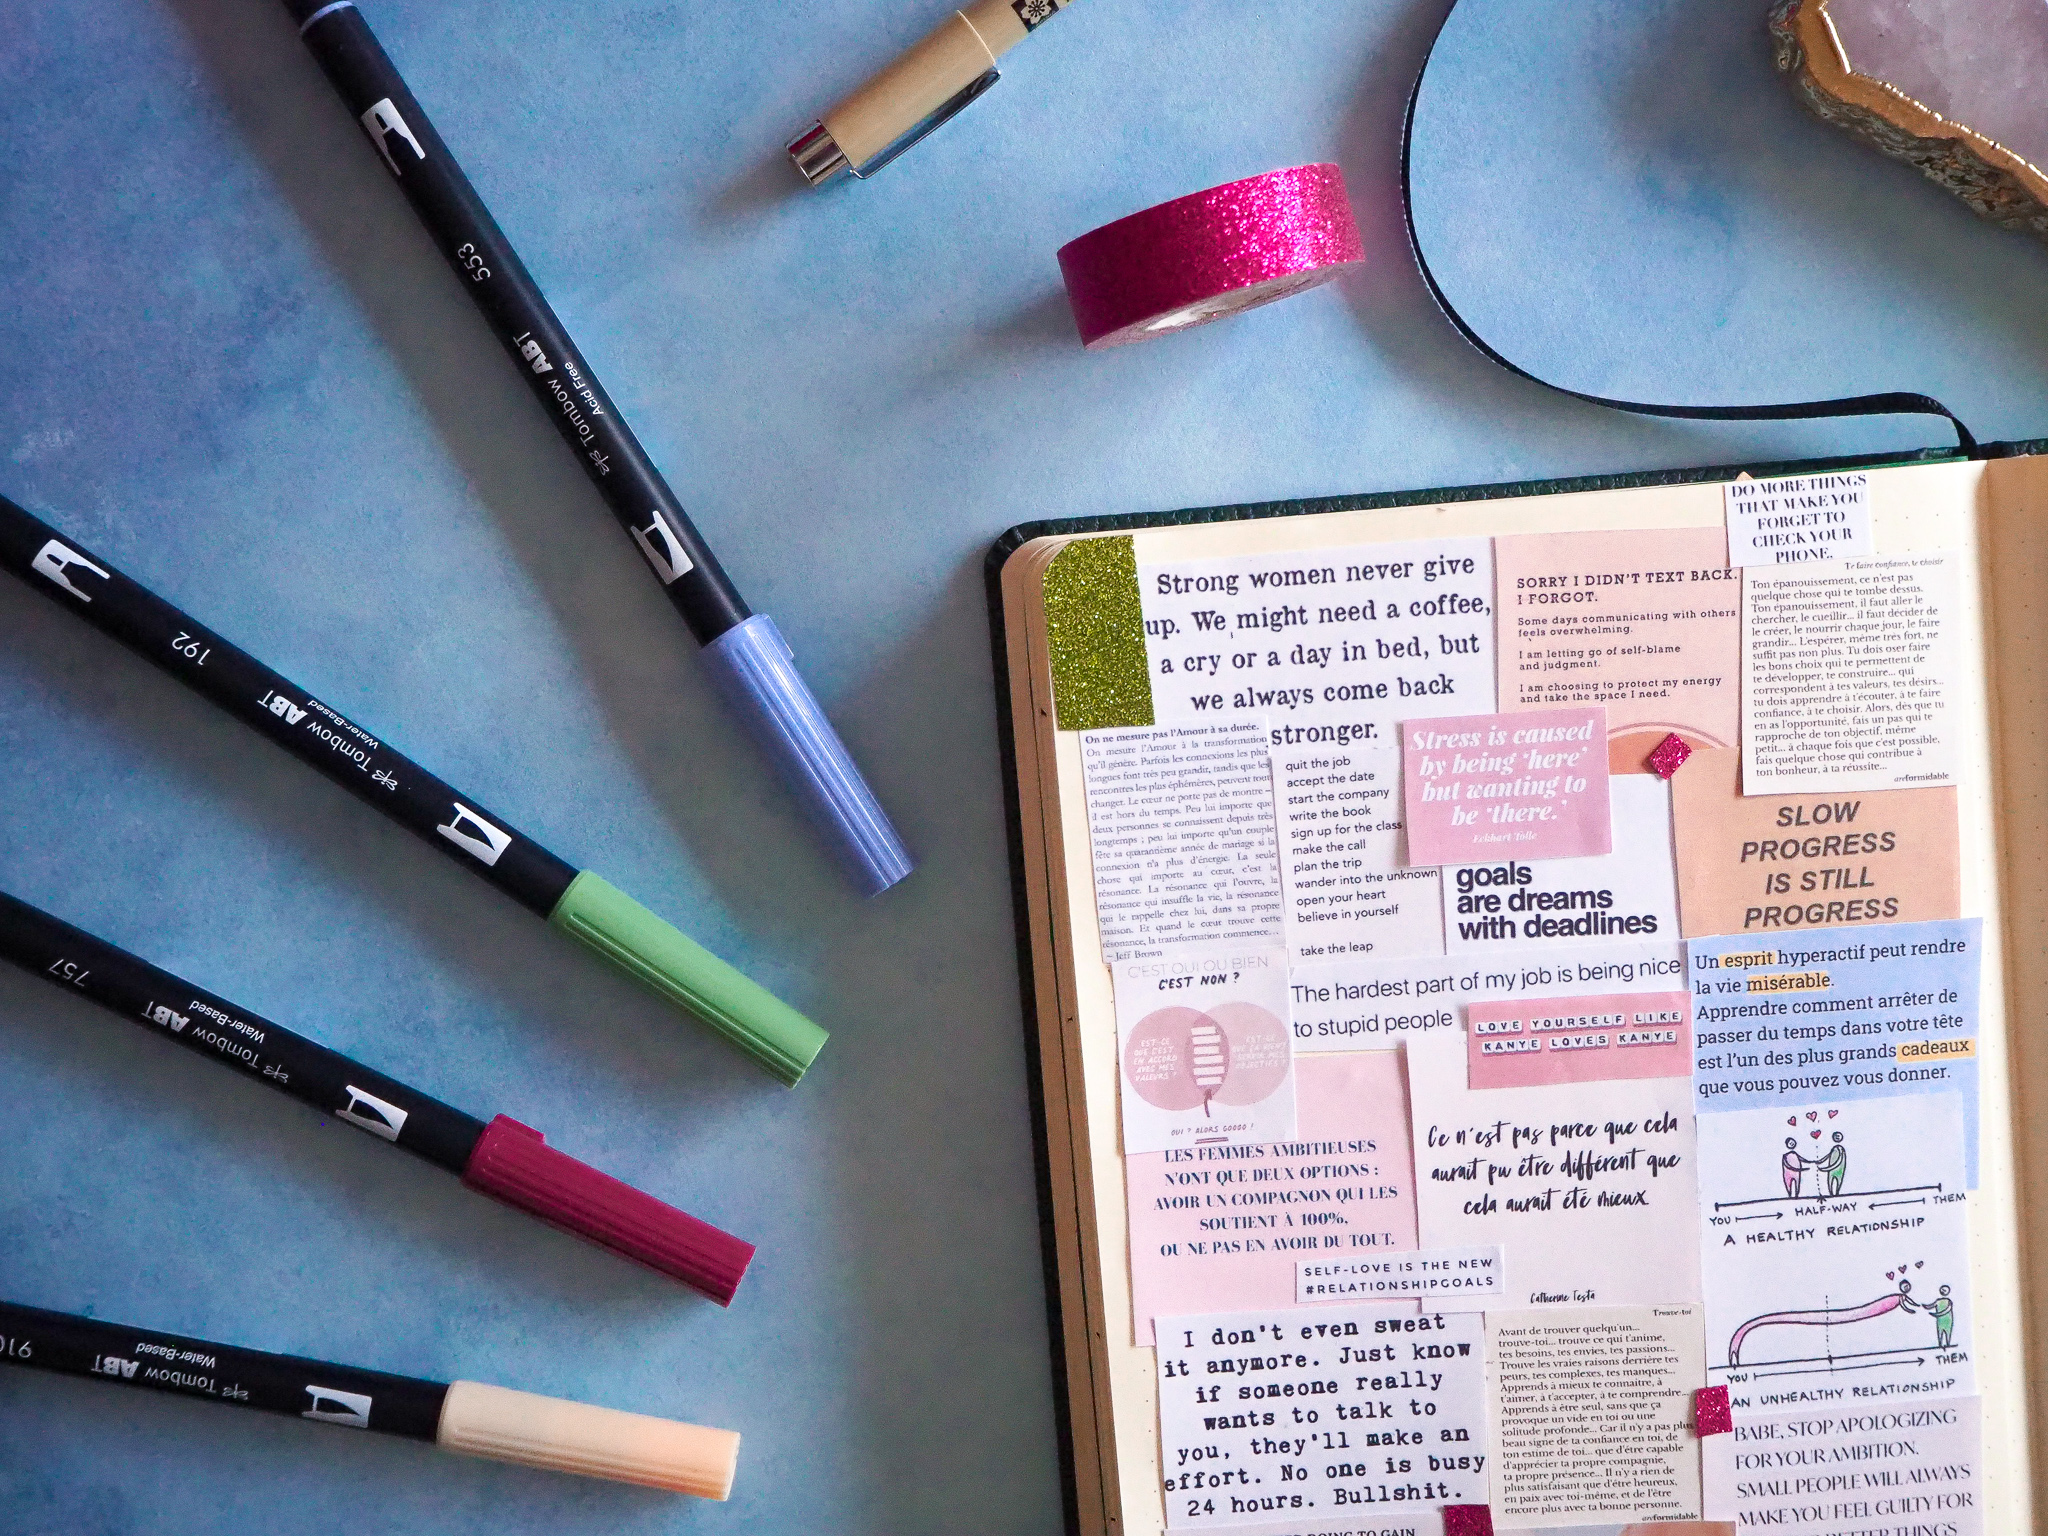 553
Tombow ABT
Acid Free
192
Tombow ABT
Water-Based
757
Tombow ABT
Water-Based
910
Tombow ABT
Water-Based
DO MORE THINGS
THAT MAKE YOU
FORGET TO
CHECK YOUR
PHONE.
Strong women never give
up. We might need a coffee,
a cry or a day in bed, but
we always come back
stronger.
SORRY I DIDN'T TEXT BACK.
I FORGOT.
Some days communicating with others
feels overwhelming.
I am letting go of self-blame
and judgment.
I am choosing to protect my energy
and take the space I need.
Te faire confiance, te choisir
Ton épanouissement, ce n'est pas
quelque chose qui te tombe dessus.
Ton épanouissement, il faut aller le
chercher, le cueillir... il faut décider de
le créer, le nourrir chaque jour, le faire
grandir... L'espérer, même très fort, ne
suffit pas non plus. Tu dois oser faire
les bons choix qui te permettent de
te développer, te construire... qui
correspondent à tes valeurs, tes désirs...
tu dois apprendre à t'écouter, à te faire
confiance, à te choisir. Alors, dès que tu
en as l'opportunité, fais un pas qui te
rapproche de ton objectif, même
petit... à chaque fois que c'est possible,
fais quelque chose qui contribue à
ton bonheur, à ta réussite...
areformidable
On ne mesure pas l'Amour à sa durée.
On mesure l'Amour à la transformation
qu'il génère. Parfois les connexions les plus
longues font très peu grandir, tandis que les
rencontres les plus éphémères, peuvent tout
changer. Le cœur ne porte pas de montre –
il est hors du temps. Peu lui importe que
deux personnes se connaissent depuis très
longtemps ; peu lui importe qu'un couple
fête sa quarantième année de mariage si la
connexion n'a plus d'énergie. La seule
chose qui importe au cœur, c'est la
résonance. La résonance qui l'ouvre, la
résonance qui insuffle la vie, la résonance
qui le rappelle chez lui, dans sa propre
maison. Et quand le cœur trouve cette
résonance, la transformation commence...
~ Jeff Brown
quit the job
accept the date
start the company
write the book
sign up for the class
make the call
plan the trip
wander into the unknown
open your heart
believe in yourself
take the leap
Stress is caused
by being 'here'
but wanting to
be 'there.'
Eckhart Tolle
goals
are dreams
with deadlines
SLOW
PROGRESS
IS STILL
PROGRESS
C'EST OUI OU BIEN
C'EST NON ?
EST-CE
QUE C'EST
EN ACCORD
AVEC MES
VALEURS ?
OUI ? ALORS GOOOO !
The hardest part of my job is being nice
to stupid people
LOVE YOURSELF LIKE
KANYE LOVES KANYE
Un esprit hyperactif peut rendre
la vie misérable.
Apprendre comment arrêter de
passer du temps dans votre tête
est l'un des plus grands cadeaux
que vous pouvez vous donner.
LES FEMMES AMBITIEUSES
N'ONT QUE DEUX OPTIONS :
AVOIR UN COMPAGNON QUI LES
SOUTIENT À 100%,
OU NE PAS EN AVOIR DU TOUT.
Ce n'est pas parce que cela
aurait pu être différent que
cela aurait été mieux.
Catherine Testa
YOU HALF-WAY THEM
A HEALTHY RELATIONSHIP
YOU THEM
AN UNHEALTHY RELATIONSHIP
SELF-LOVE IS THE NEW
#RELATIONSHIPGOALS
I don't even sweat
it anymore. Just know
if someone really
wants to talk to
you, they'll make an
effort. No one is busy
24 hours. Bullshit.
Trouve-toi
Avant de trouver quelqu'un...
trouve-toi... trouve ce qui t'anime,
tes besoins, tes envies, tes passions...
Trouve les vraies raisons derrière tes
peurs, tes complexes, tes manques...
Apprends à mieux te connaitre, à
t'aimer, à t'accepter, à te comprendre...
Apprends à être seul, sans que ça
provoque un vide en toi ou une
solitude profonde... Car il n'y a pas plus
beau signe de ta confiance en toi, de
ton estime de toi... que d'être capable
d'apprécier ta propre compagnie,
ta propre présence... Il n'y a rien de
plus satisfaisant que d'être heureux,
en paix avec toi-même, et de l'être
encore plus avec ta bonne personne.
areformidable
BABE, STOP APOLOGIZING
FOR YOUR AMBITION.
SMALL PEOPLE WILL ALWAYS
MAKE YOU FEEL GUILTY FOR
BETTER THINGS
DOING TO GAIN